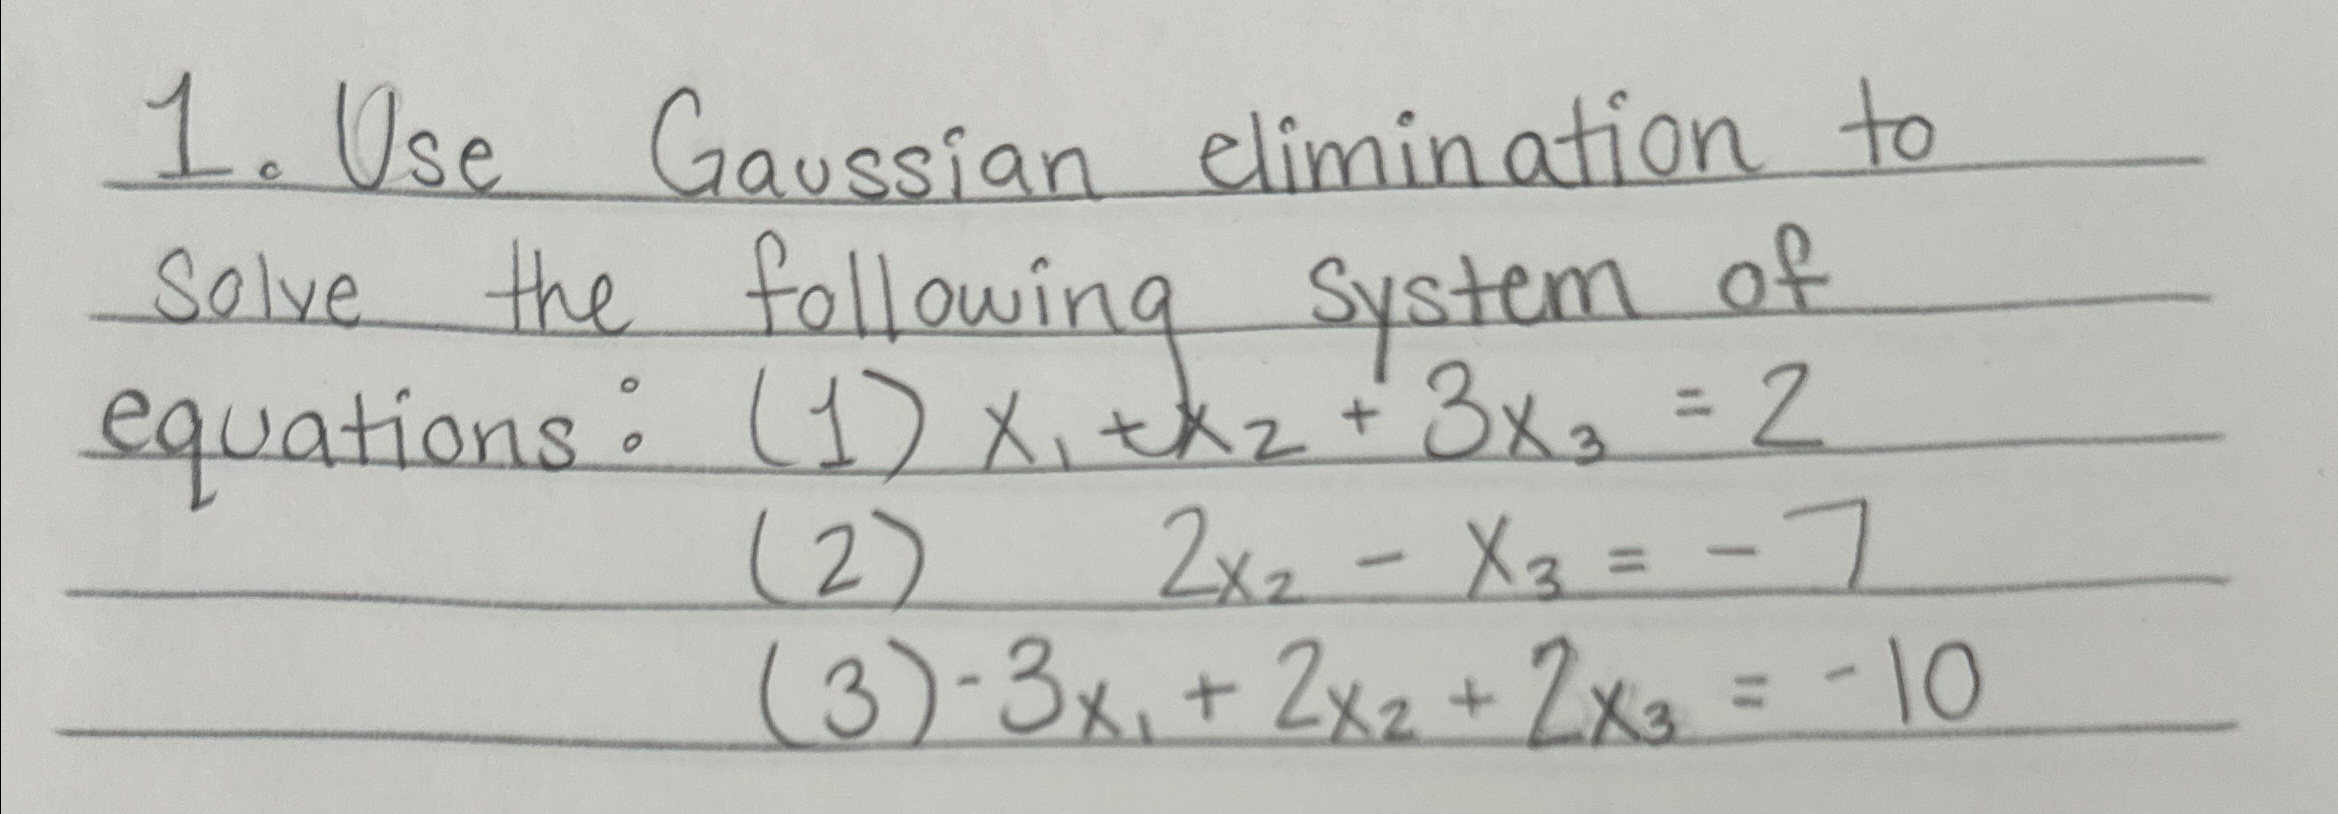 1. Use Gaussian elimination to
solve the following system of
equations: (1) x₁ + x₂ + 3x₃ = 2
(2) 2x₂ - x₃ = -7
(3) -3x₁ + 2x₂ + 2x₃ = -10